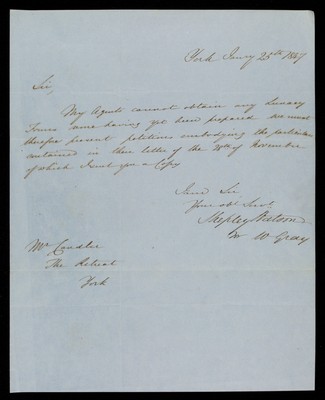 York Jany 25th 1847
Sir,
My Agents cannot obtain any Lunacy
Forms none having yet been prepared we must
therefore present petitions embodying the particulars
contained in their letter of the of November
of which I sent you a Copy
I am Sir
Your obt Servt
Shepley Watson
for W Gray
Mr Candler
The Retreat
York